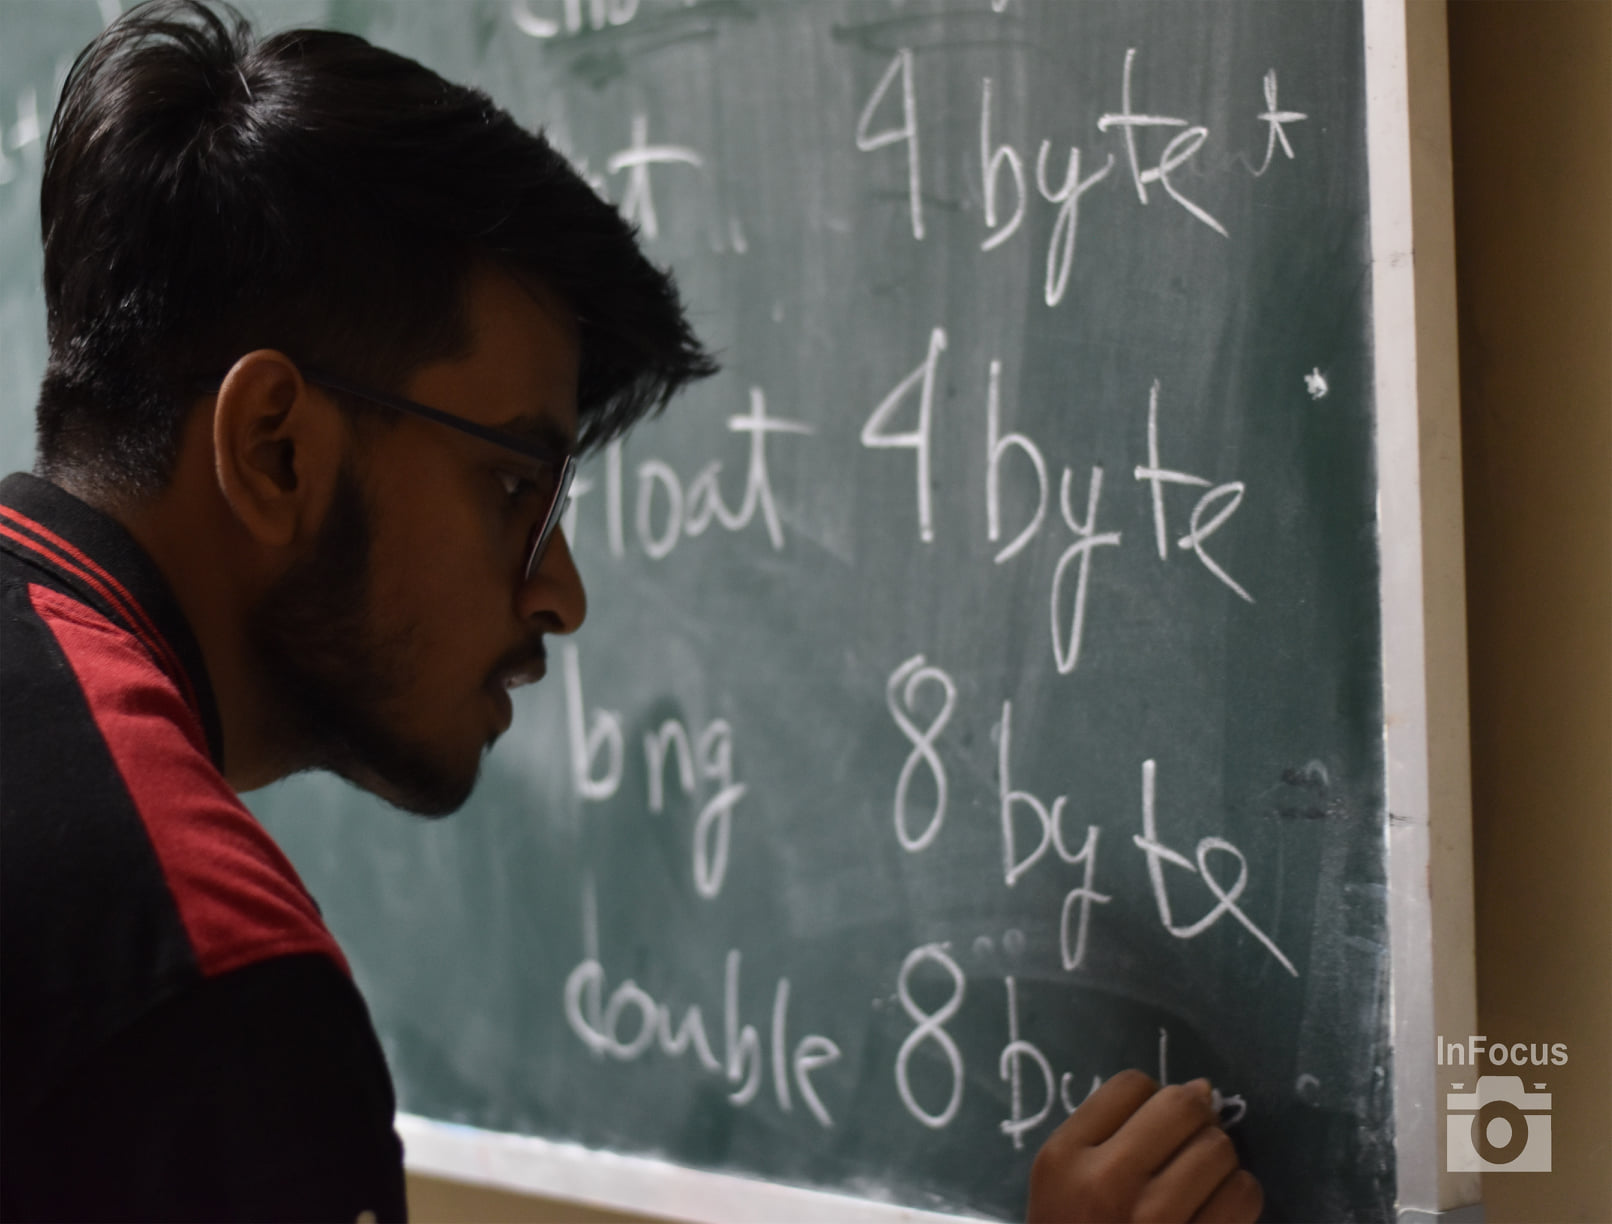 4 byte *
float 4 byte
long 8 byte
double 8 byte
InFocus